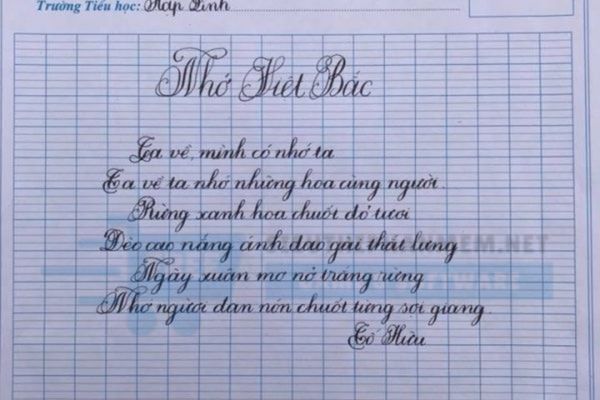 Trường Tiểu học: Hạp Lĩnh
Nhớ Việt Bắc
Ta về, mình có nhớ ta
Ta về ta nhớ những hoa cùng người.
Rừng xanh hoa chuối đỏ tươi
Đèo cao nắng ánh dao gài thắt lưng
Ngày xuân mơ nở trắng rừng
Nhớ người đan nón chuốt từng sợi giang.
Tố Hữu